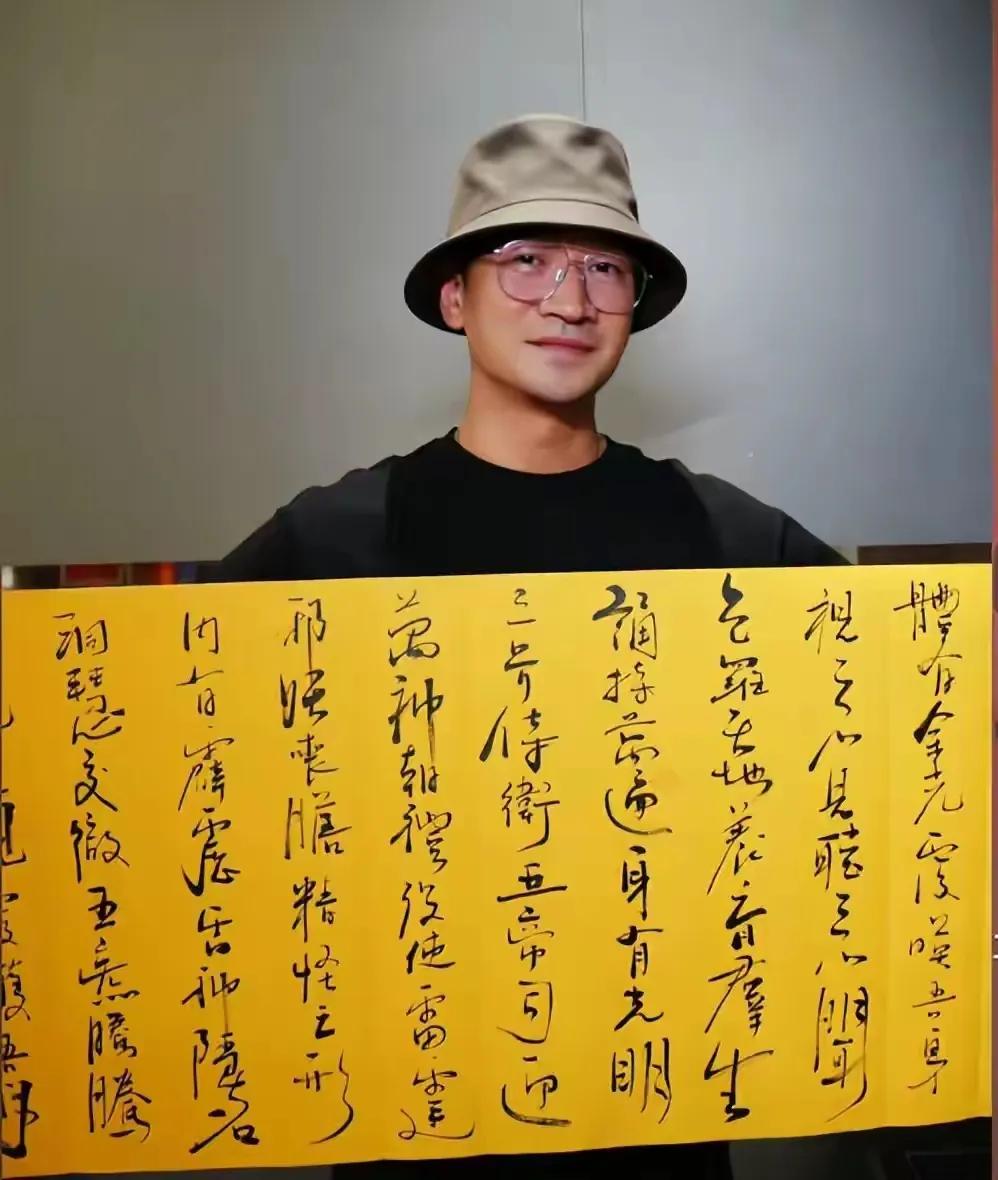 體有金光覆映吾身
視之不見聽之不聞
包羅天地養育羣生
誦持萬遍身有光明
三界侍衛五帝司迎
萬神朝禮役使雷霆
邪妖喪膽精怪亡形
內有霹靂雷神隱名
洞慧交徹五炁騰騰
覆護吾身